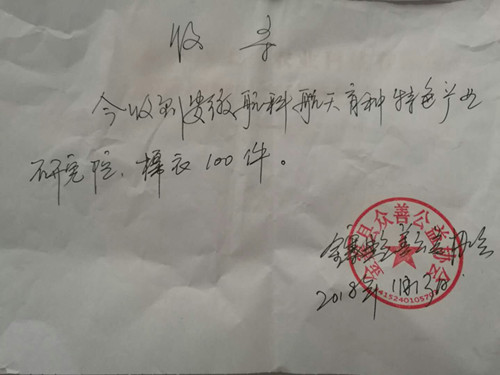 收 条
今收到安徽航科航天育种特色产业
研究院、棉衣100件。
金寨县众善公益协会
金寨县众善公益协会
2018年11月13日